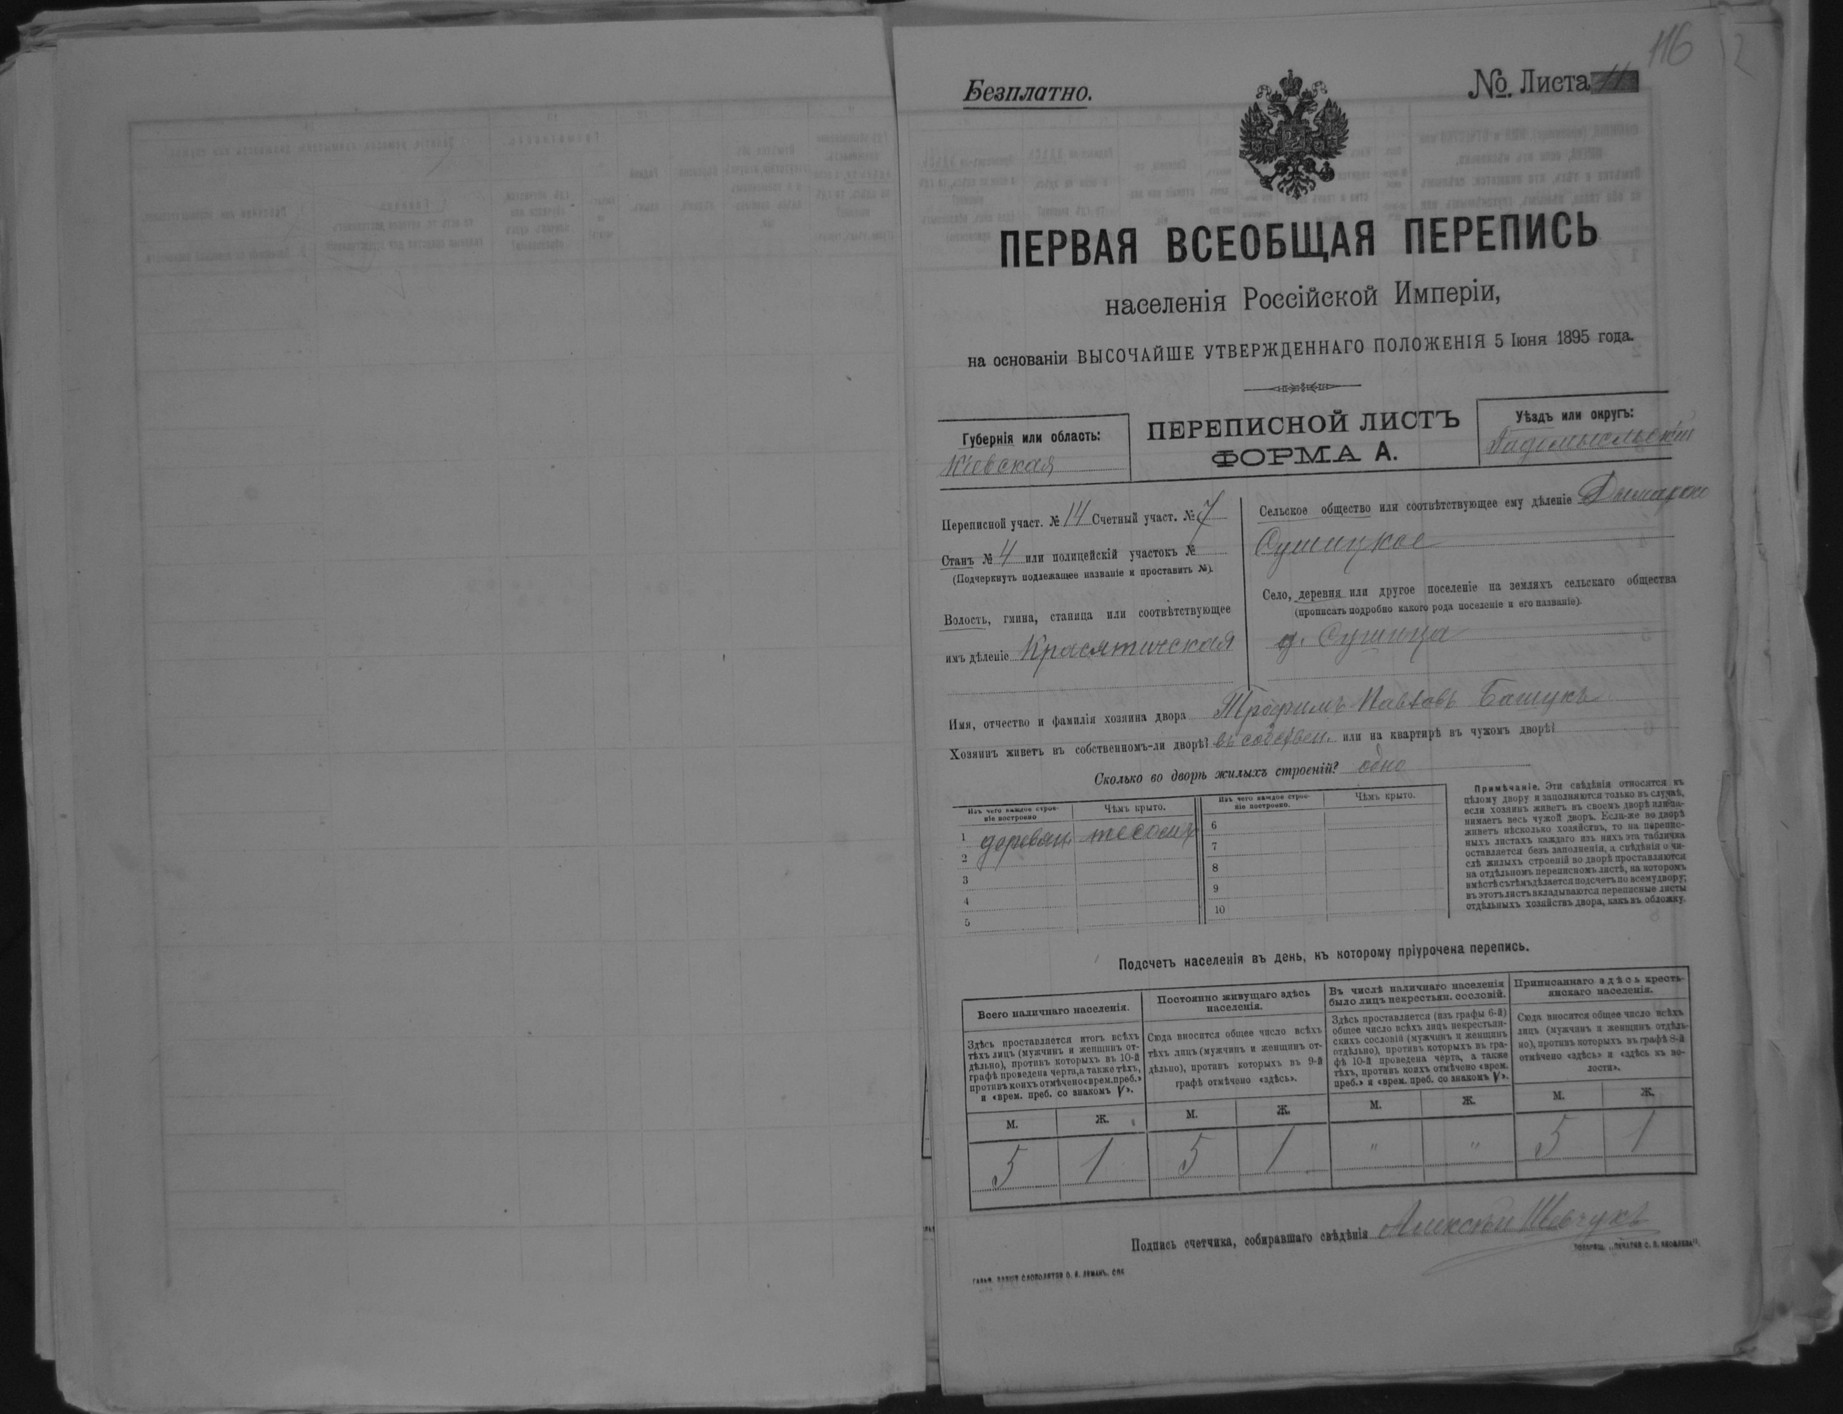 116
Безплатно.
№ Листа 11
ПЕРВАЯ ВСЕОБЩАЯ ПЕРЕПИСЬ
населенія Россійской Имперіи,
на основаніи ВЫСОЧАЙШЕ УТВЕРЖДЕННАГО ПОЛОЖЕНІЯ 5 Іюня 1895 года.
Губернія или область:
Кіевская
ПЕРЕПИСНОЙ ЛИСТЪ
ФОРМА А.
Уѣздъ или округъ:
Радомысльскій
Переписной участ. № 14 Счетный участ. № 7
Станъ № 4 или полицейскій участокъ №
(Подчеркнуть подлежащее названіе и проставить №).
Волость, гмина, станица или соотвѣтствующее
имъ дѣленіе Красятичская
Сельское общество или соотвѣтствующее ему дѣленіе
Сушицкое
Село, деревня или другое поселеніе на земляхъ сельскаго общества
(прописать подробно какого рода поселеніе и его названіе).
д. Сушица
Имя, отчество и фамилія хозяина двора Трофимъ Павловъ Башукъ
Хозяинъ живетъ въ собственномъ-ли дворѣ? въ собствен. или на квартирѣ въ чужомъ дворѣ?
Сколько во дворѣ жилыхъ строеній? одно
Изъ чего каждое строе-
ніе построено
Чѣмъ крыто.
1 деревян. тесомъ
2
3
4
5
Изъ чего каждое строе-
ніе построено.
Чѣмъ крыто.
6
7
8
9
10
Примѣчаніе. Эти свѣдѣнія относятся къ
цѣлому двору и заполняются только въ случаѣ,
если хозяинъ живетъ въ своемъ дворѣ или за-
нимаетъ весь чужой дворъ. Если-же во дворѣ
живетъ нѣсколько хозяйствъ, то на перепис-
ныхъ листахъ каждаго изъ нихъ эта табличка
оставляется безъ заполненія, а свѣдѣнія о чи-
слѣ жилыхъ строеній во дворѣ проставляются
на отдѣльномъ переписномъ листѣ, на которомъ
вмѣстѣ съ тѣмъ дѣлается подсчетъ по всему двору;
въ этотъ листъ вкладываются переписные листы
отдѣльныхъ хозяйствъ двора, какъ въ обложку.
Подсчетъ населенія въ день, къ которому пріурочена перепись.
Всего наличнаго населенія.
Здѣсь проставляется итогъ всѣхъ
тѣхъ лицъ (мужчинъ и женщинъ от-
дѣльно), противъ которыхъ въ 10-й
графѣ проведена черта, а также тѣхъ,
противъ коихъ отмѣчено «врем. преб.»
и «врем. преб. со знакомъ V».
М. Ж.
5 1
Постоянно живущаго здѣсь
населенія.
Сюда вносится общее число всѣхъ
тѣхъ лицъ (мужчинъ и женщинъ от-
дѣльно), противъ которыхъ въ 9-й
графѣ отмѣчено «здѣсь».
М. Ж.
5 1
Въ числѣ наличнаго населенія
было лицъ некрестьян. сословій.
Здѣсь проставляется (изъ графы 6-й)
общее число всѣхъ лицъ некрестьян-
скихъ сословій (мужчинъ и женщинъ
отдѣльно), противъ которыхъ въ гра-
фѣ 10-й проведена черта, а также
тѣхъ, противъ коихъ отмѣчено «врем.
преб.» и «врем. преб. со знакомъ V».
М. Ж.
" "
Приписаннаго здѣсь кресть-
янскаго населенія.
Сюда вносится общее число всѣхъ
лицъ (мужчинъ и женщинъ отдѣль-
но), противъ которыхъ въ графѣ 8-й
отмѣчено «здѣсь» и «здѣсь къ во-
лости».
М. Ж.
5 1
Подпись счетчика, собиравшаго свѣдѣнія Алексѣй Шевчукъ